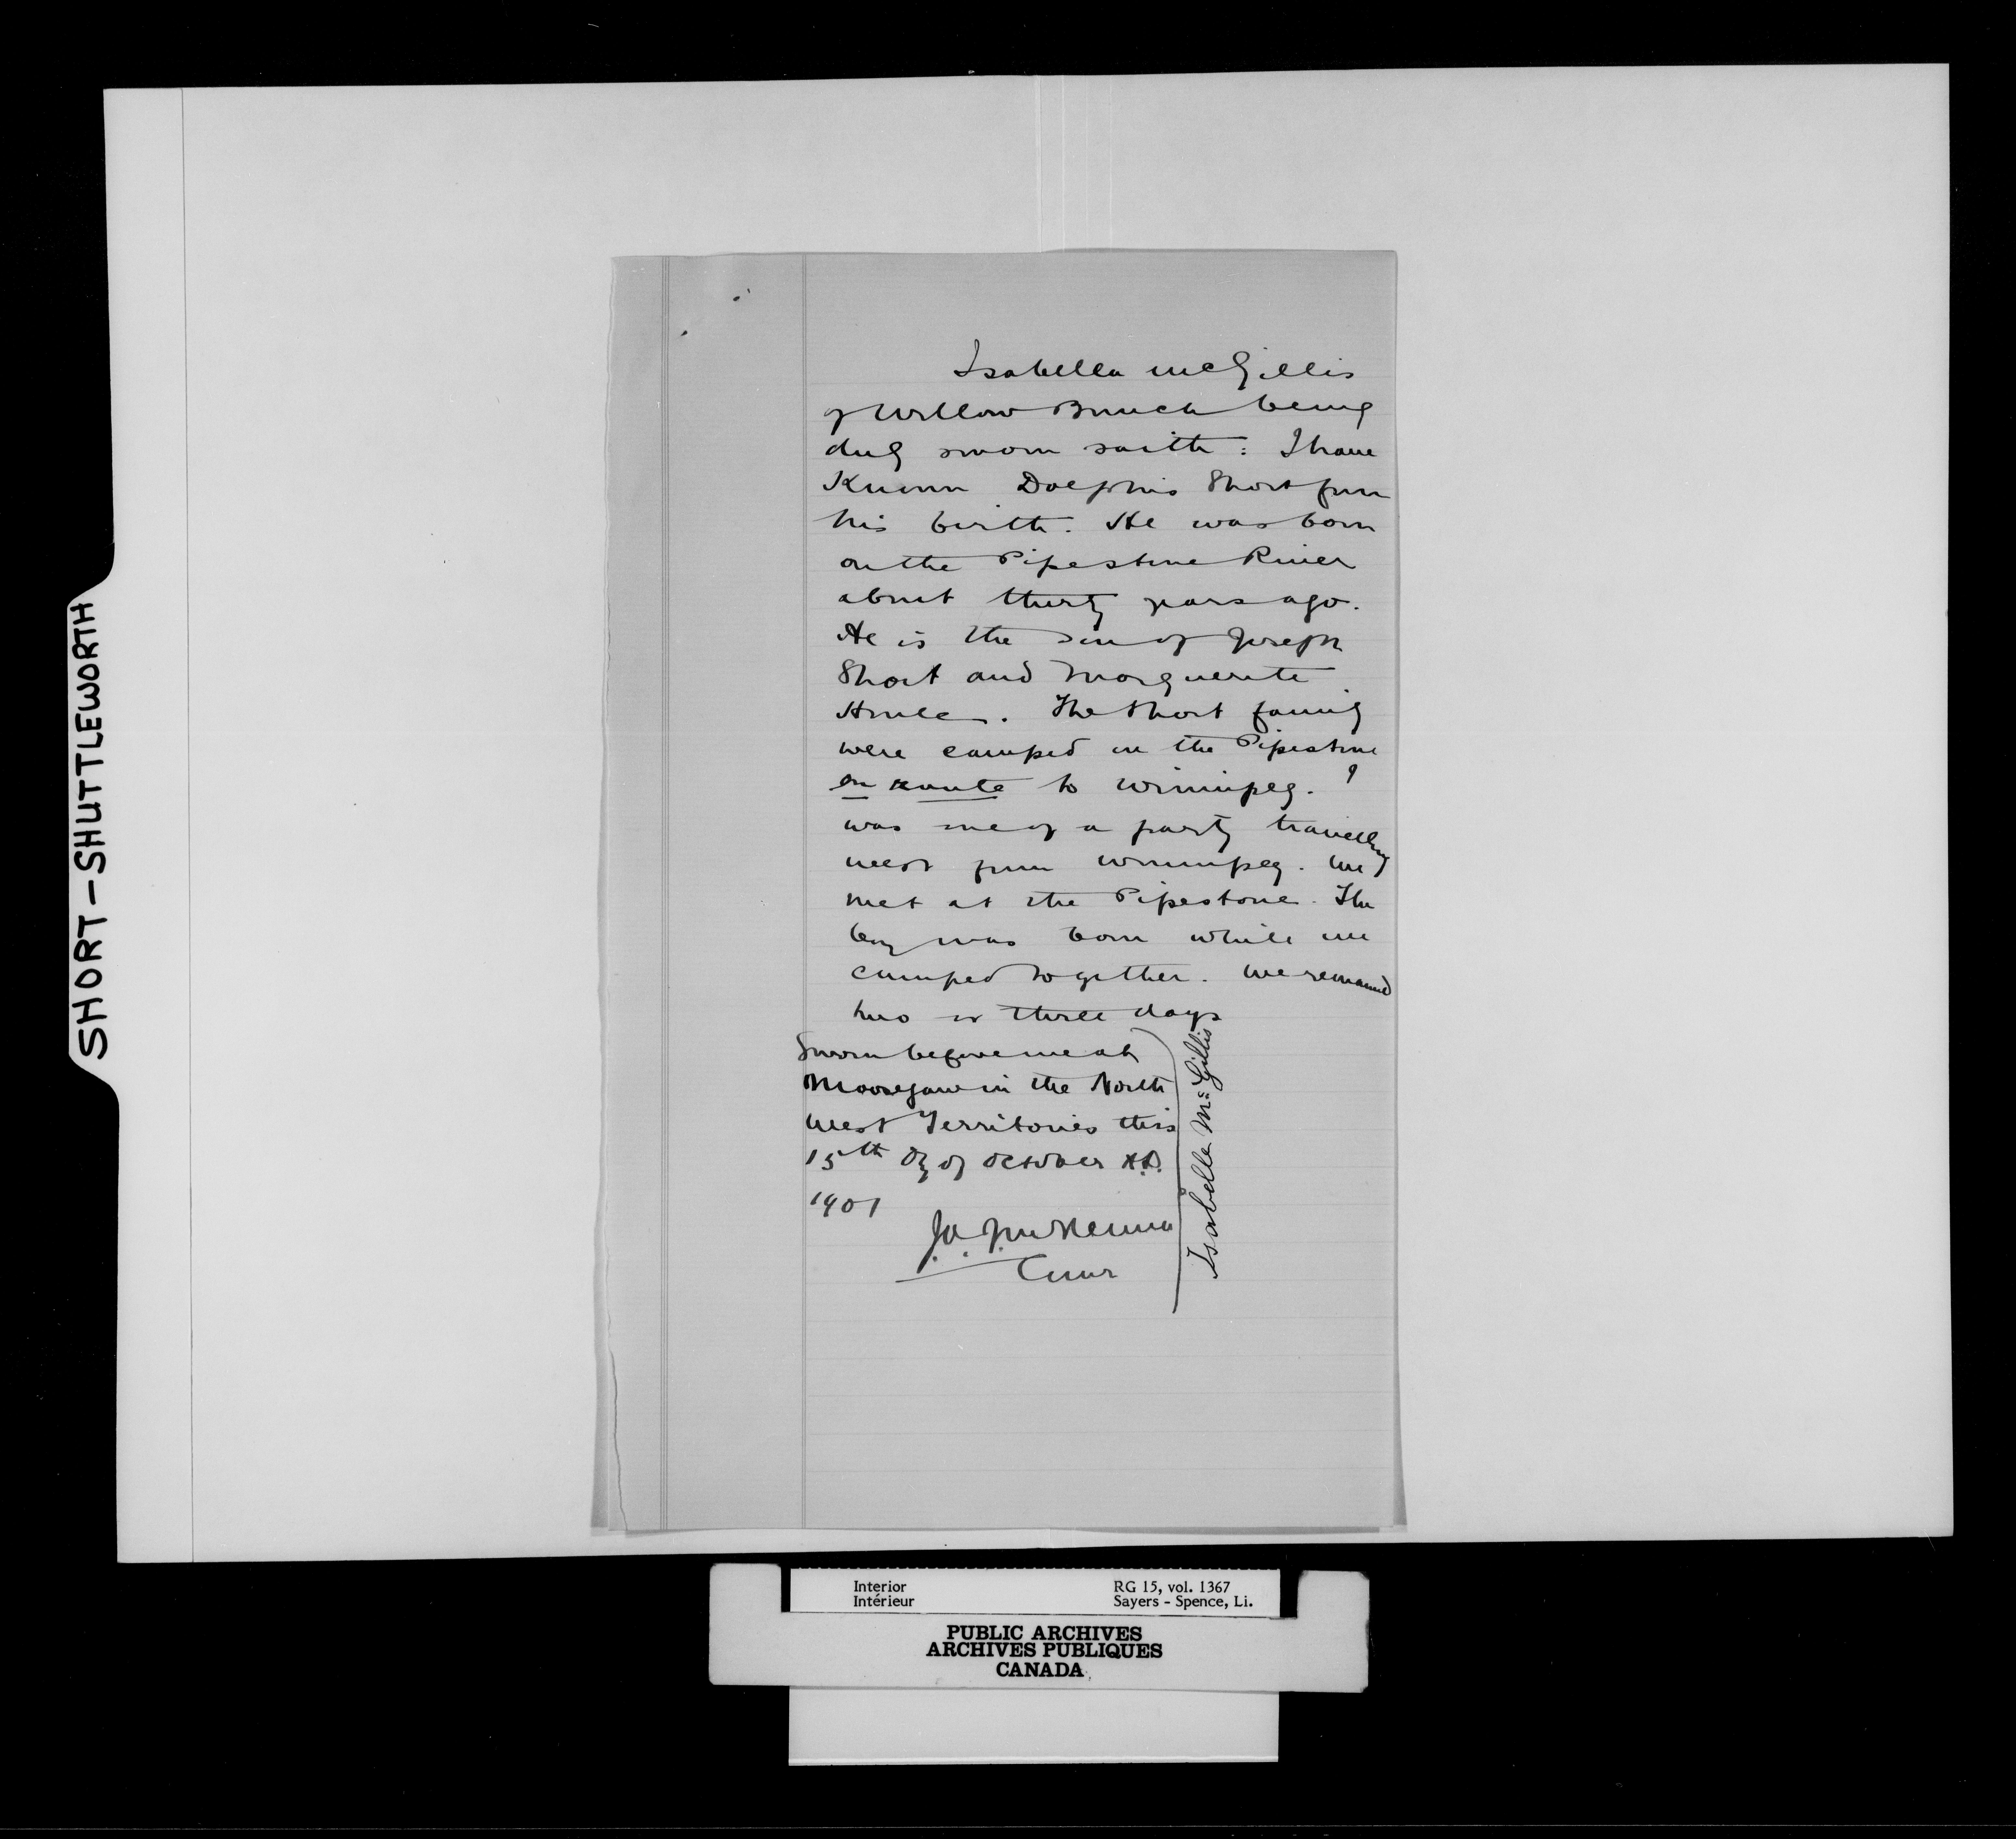 SHORT-SHUTTLEWORTH
Isabella McGillis
of Willow Bunch being
duly sworn saith: I have
Known Dolphis Short from
his birth. He was born
on the Pipestone River
about thirty years ago.
He is the son of Joseph
Short and Marguerite
Houle. The Short family
were camped on the Pipestone
en route to Winnipeg. I
was one of a party travelling
west from Winnipeg. We
met at the Pipestone. The
boy was born while we
camped together. We remained
two or three days
Sworn before me at
Moosejaw in the North
West Territories this
15th Dy of October A.D.
1901
J.A.J. McKenna
Comr
Isabelle McGillis
Interior RG 15, vol. 1367
Intérieur Sayers - Spence, Li.
PUBLIC ARCHIVES
ARCHIVES PUBLIQUES
CANADA